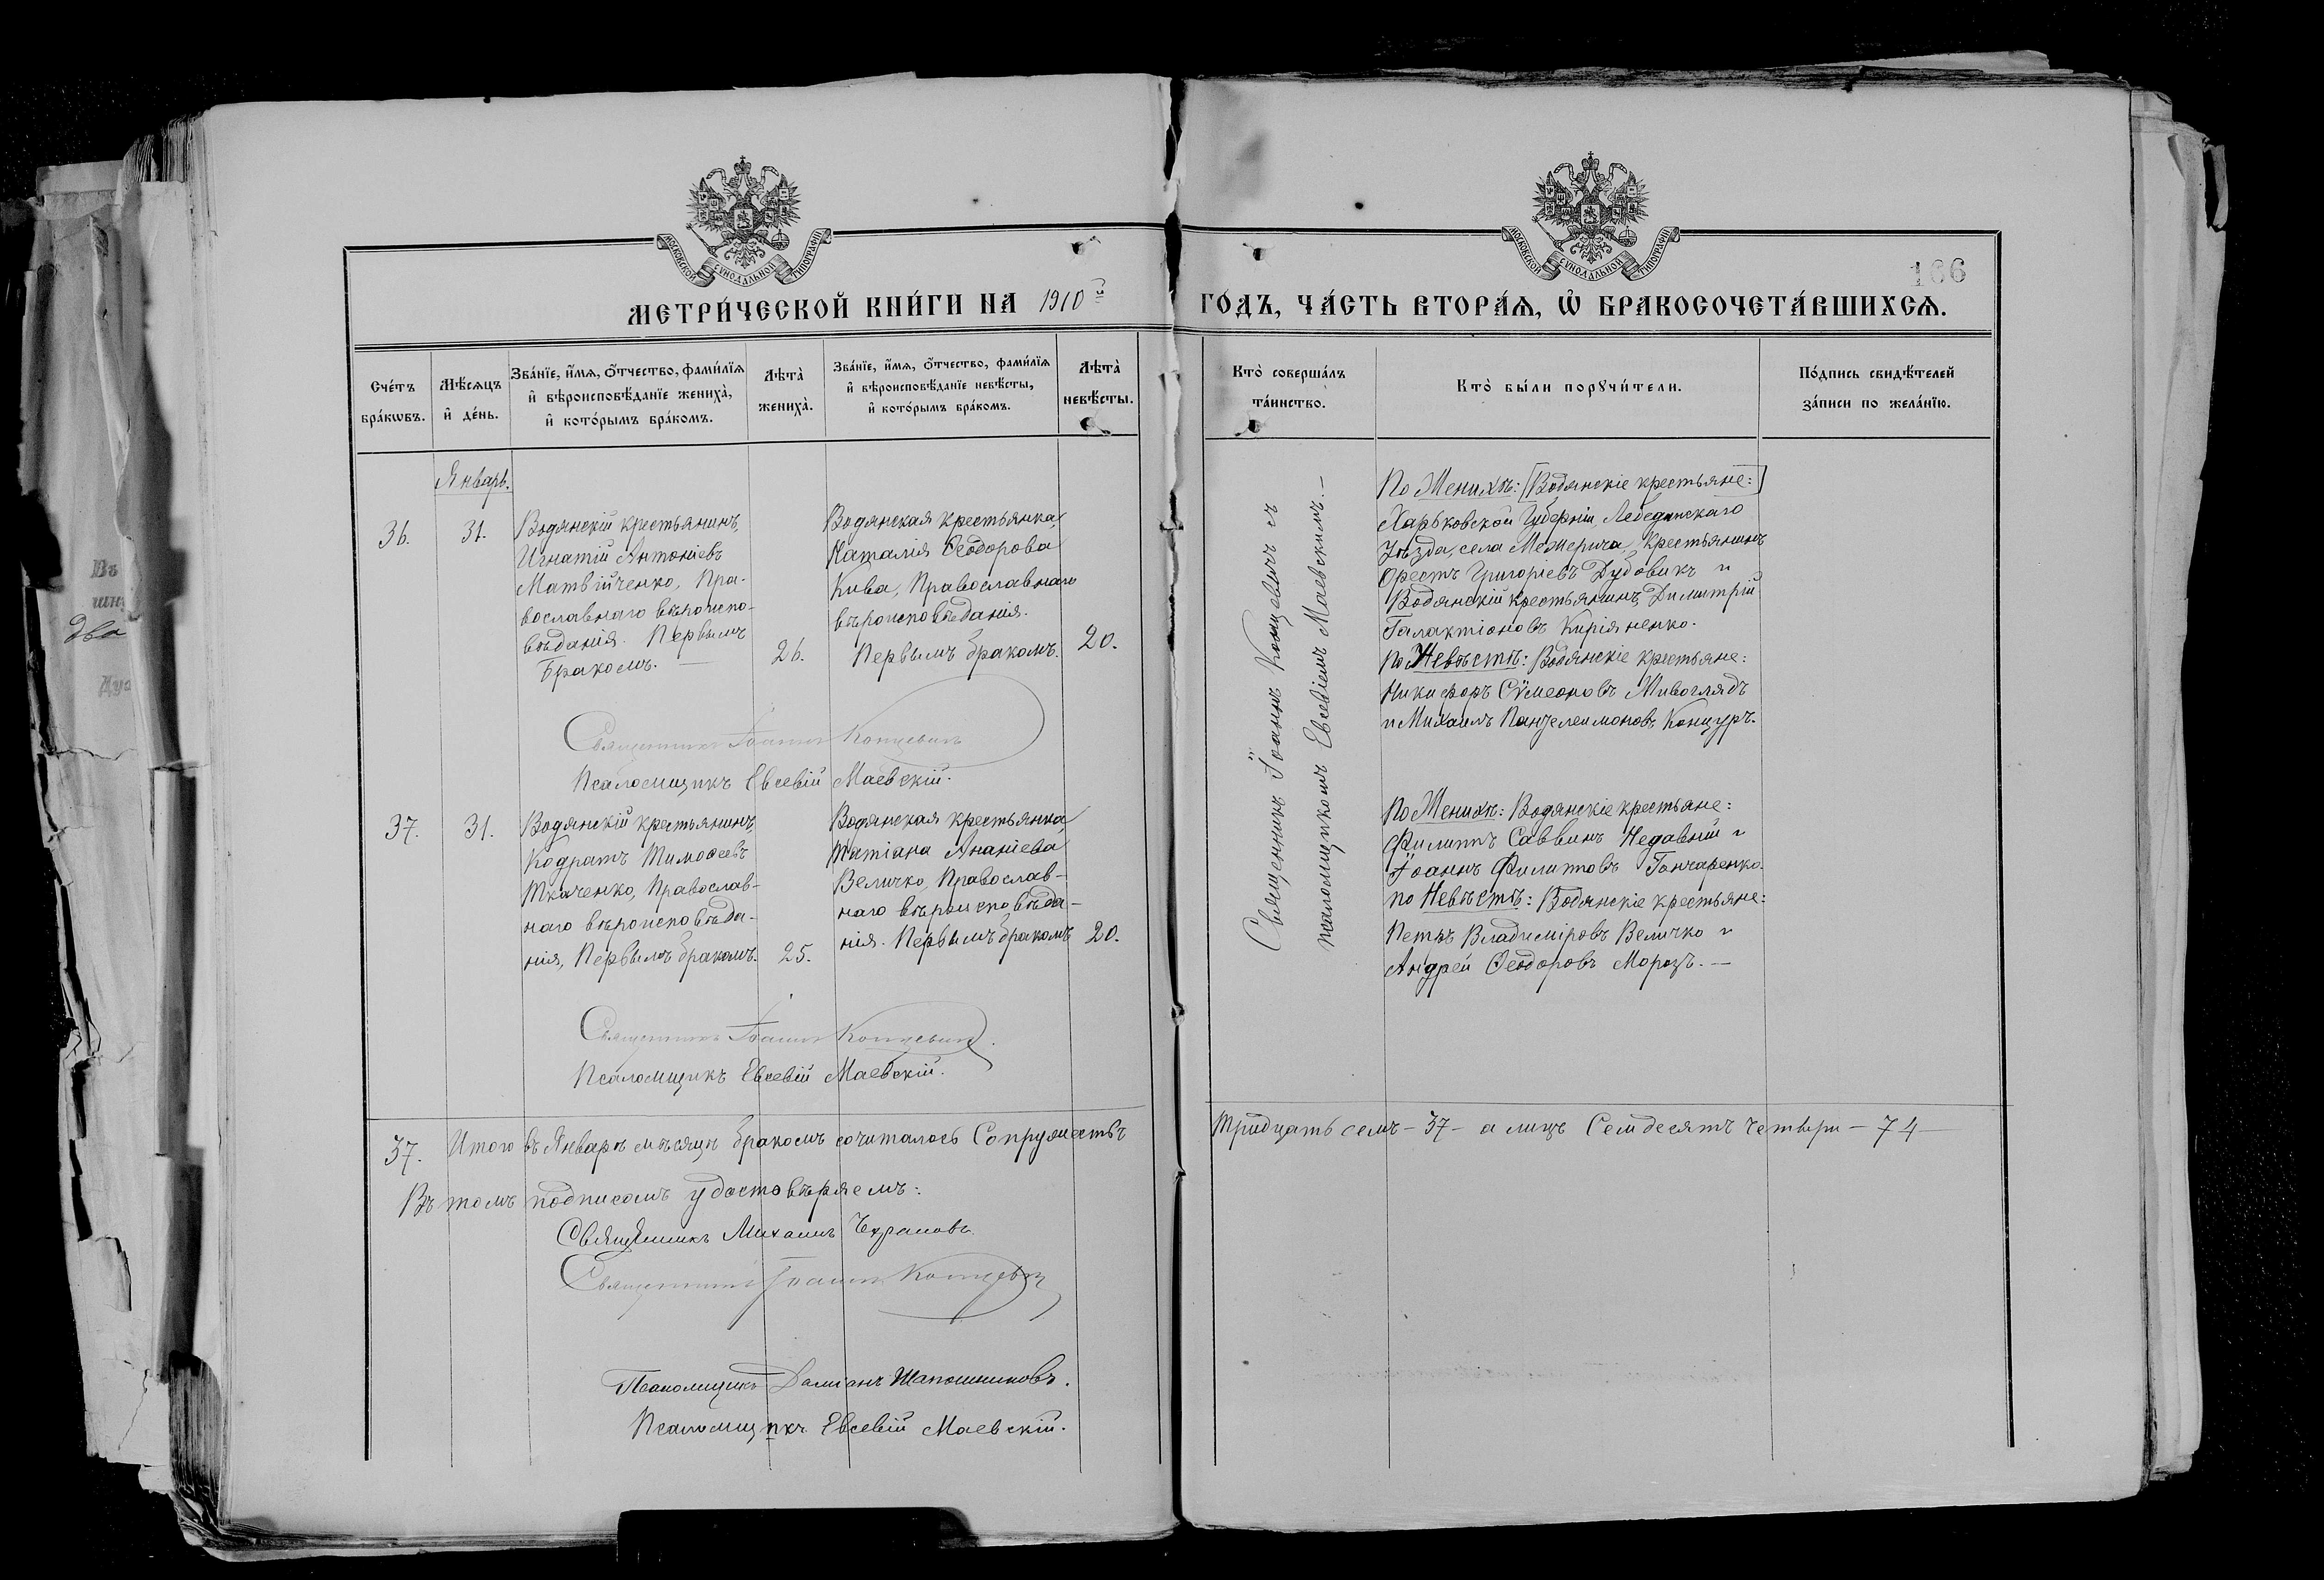 МОСКОВСКОЙ СУНОДАЛЬНОЙ ТИПОГРАФІИ
МОСКОВСКОЙ СУНОДАЛЬНОЙ ТИПОГРАФІИ
166
МЕТРИ́ЧЕСКОЙ КНИ́ГИ НА 1910й
ГО́ДЪ, ЧА́СТЬ ВТОРА́Я, Ѡ҆ БРАКОСОЧЕТА́ВШИХСѦ.
Сче́тъ бра́кѡвъ.
Мѣ́сяцъ и҆ де́нь.
Зва́нїе, и҆́мѧ, ѻ҆́тчество, фами́лїѧ
и҆ вѣроисповѣ́данїе жениха̀,
и҆ кото́рымъ бра́комъ.
Лѣта̀
жениха̀.
Зва́нїе, и҆́мѧ, ѻ҆́тчество, фами́лїѧ
и҆ вѣроисповѣ́данїе невѣ́сты,
и҆ кото́рымъ бра́комъ.
Лѣта̀
невѣ́сты.
Кто̀ соверша́лъ
та́инство.
Кто̀ бы́ли порꙋчи́тели.
По́дпись свидѣ́телей
за́писи по жела́нїю.
Январь.
36.
31.
Водянскій крестьянинъ,
Игнатій Антоніевъ
Матвійченко, Пра-
вославнаго вѣроиспо-
вѣданія. Первымъ
Бракомъ. —
26.
Водянская крестьянка
Наталія Ѳеодорова
Кива, Православнаго
вѣроисповѣданія.
Первымъ бракомъ.
20.
Священникъ Іоаннъ Концевичъ
Псаломщикъ Евсевій Маевскій.
Священникъ Іоаннъ Концевичъ съ
псаломщикомъ Евсевіемъ Маевскимъ. —
По Женихѣ: [Водянскіе крестьяне:]
Харьковской Губерніи, Лебединскаго
Уѣзда, села Межерича, крестьянинъ
Орестъ Григоріевъ Дудовикъ и
Водянскій крестьянинъ Димитрій
Галактіоновъ Киріяненко.
По Невѣстѣ: Водянскіе крестьяне:
Никифоръ Сѵмеоновъ Живоглядъ
и Михаилъ Пантелеимоновъ Концуръ.
37.
31.
Водянскій крестьянинъ,
Кодратъ Тимоѳеевъ
Ткаченко, Православ-
наго вѣроисповѣда-
нія, Первымъ бракомъ.
25.
Водянская крестьянка,
Татіана Ананіева
Величко, Православ-
наго вѣроисповѣда-
нія. Первымъ бракомъ
20.
По Женихѣ: Водянскіе крестьяне:
Филиппъ Саввинъ Недавній и
Іоаннъ Филипповъ Гончаренко.
по Невѣстѣ: Водянскіе крестьяне:
Петръ Владиміровъ Величко и
Андрей Ѳеодоровъ Морозъ. —
Священникъ Іоаннъ Концевичъ.
Псаломщикъ Евсевій Маевскій.
37. Итого въ Январѣ мѣсяцѣ бракомъ сочиталось Супружествъ
Тридцать семь – 37 – а лицъ Семдесятъ четыри – 74 —
Въ томъ подписомъ удостовѣряемъ:
Священникъ Михаилъ
Священникъ Іоаннъ Концевичъ
Псаломщикъ Даміанъ Шапошниковъ.
Псаломщикъ Евсевій Маевскій.
Въ
два